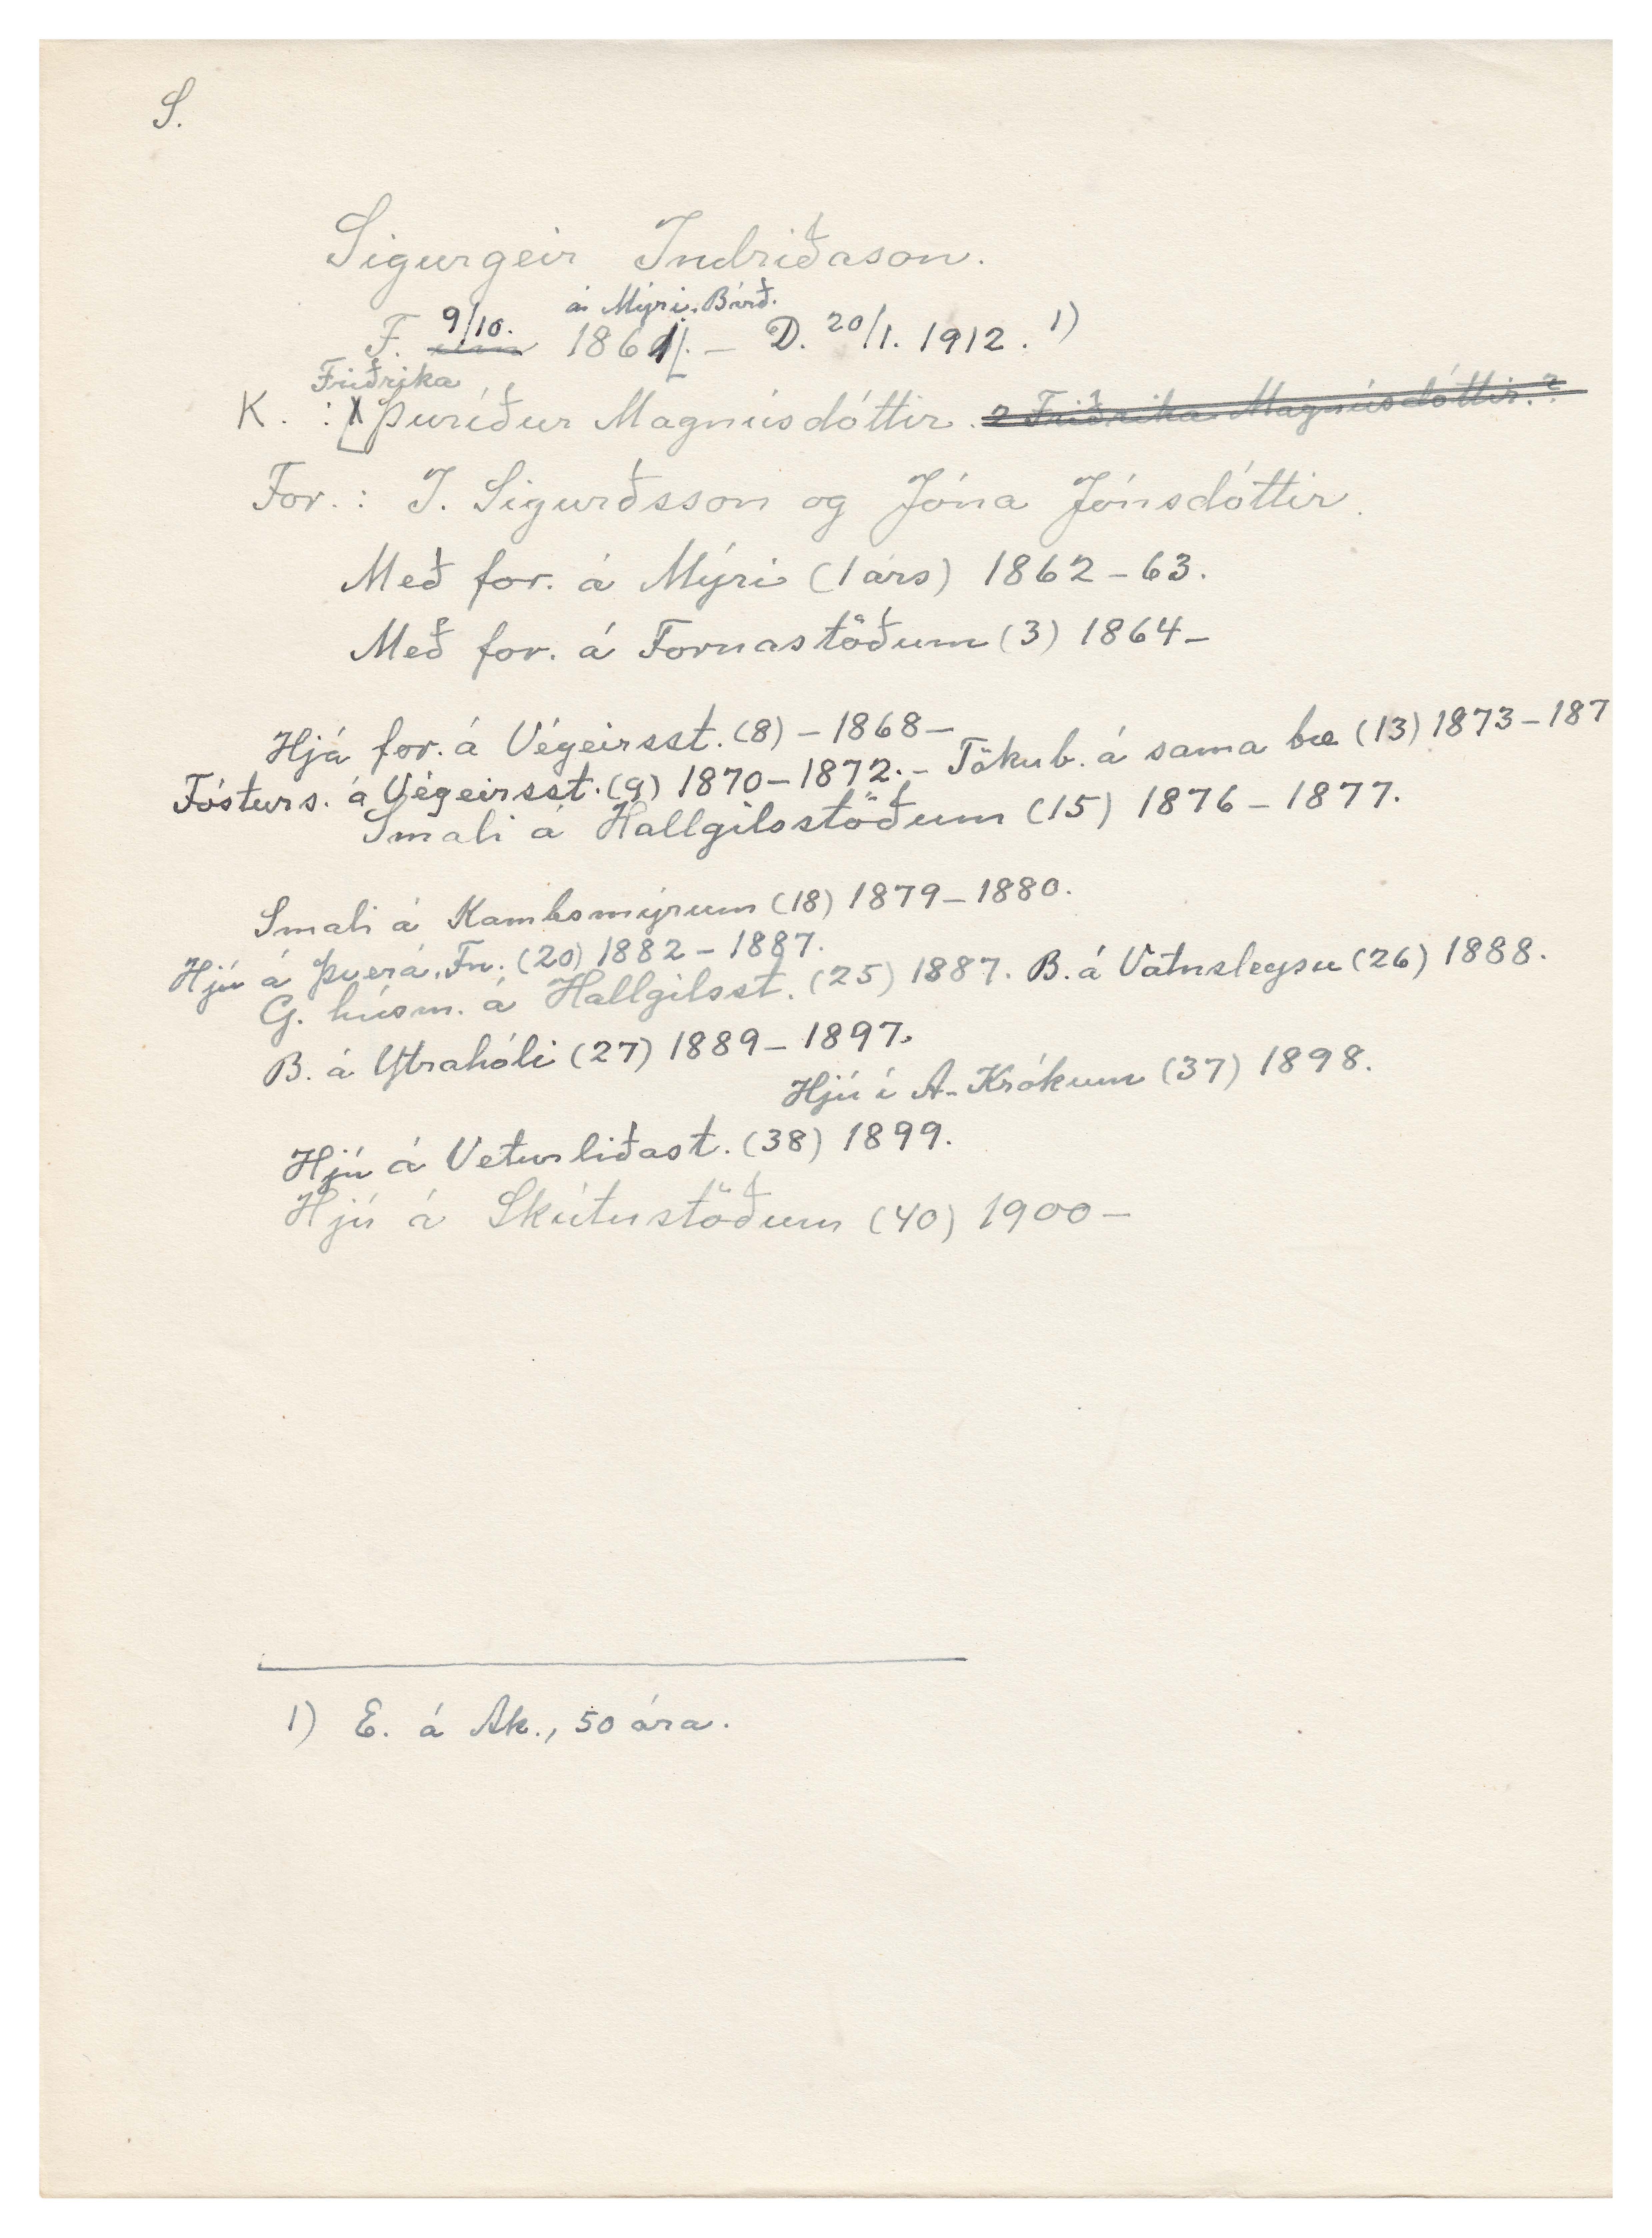 S.
Sigurgeir Indriðason.
á Mýri, Bárð.
F. 9/10. um 1861. – D. 20/1. 1912. 1)
Friðrika
K. : Þuríður Magnúsdóttir. ? Friðrika Magnúsdóttir. ?
For. : I. Sigurðsson og Jóna Jónsdóttir.
Með for. á Mýri (1 árs) 1862–63.
Með for. á Fornastöðum (3) 1864–
Hjá for. á Végeirsst. (8) – 1868–
Fósturs. á Végeirsst. (9) 1870–1872. – Tökub. á sama bæ (13) 1873–187
Smali á Hallgilsstöðum (15) 1876–1877.
Smali á Kambsmýrum (18) 1879–1880.
Hjú á Þverá, Fn. (20) 1882–1887.
G. húsm. á Hallgilsst. (25) 1887. B. á Vatnsleysu (26) 1888.
B. á Ytrahóli (27) 1889–1897.
Hjú í A-Krókum (37) 1898.
Hjú á Veturliðast. (38) 1899.
Hjú á Skútustöðum (40) 1900–
1) E. á Ak., 50 ára.